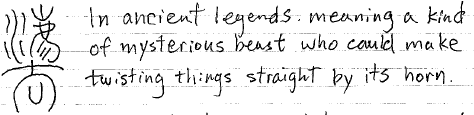 In ancient legends. meaning a kind
of mysterious beast who could make
twisting things straight by its horn.